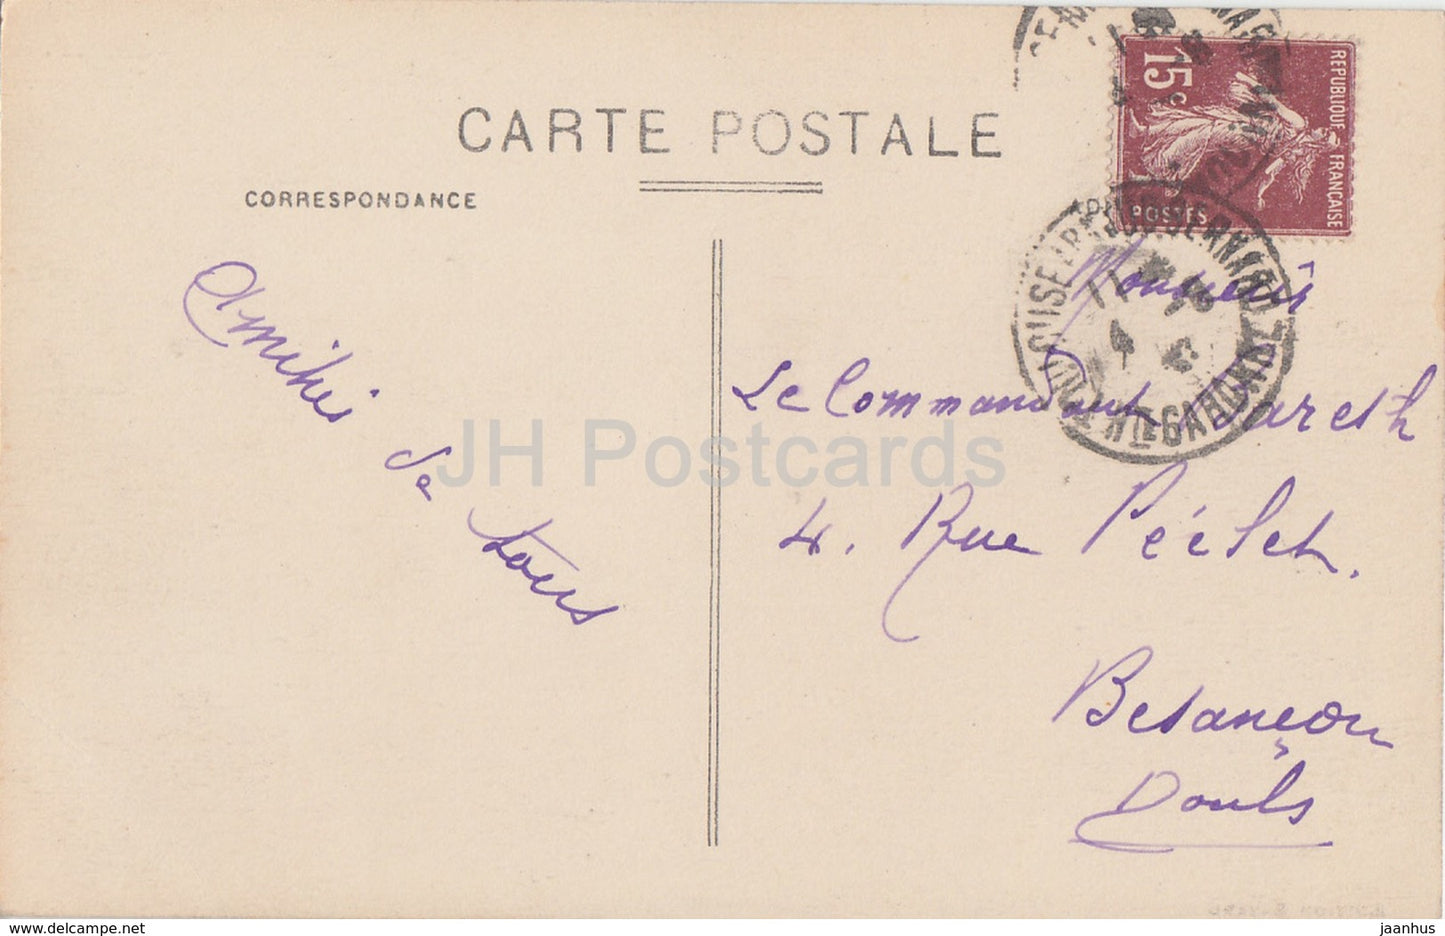 CARTE POSTALE
CORRESPONDANCE
Amitiés
de
tous
15c
REPUBLIQUE FRANÇAISE
POSTES
Monsieur
Le Commandant
4. Rue
Besançon
Doubs
JH Postcards
jaanhus @ delcampe.net